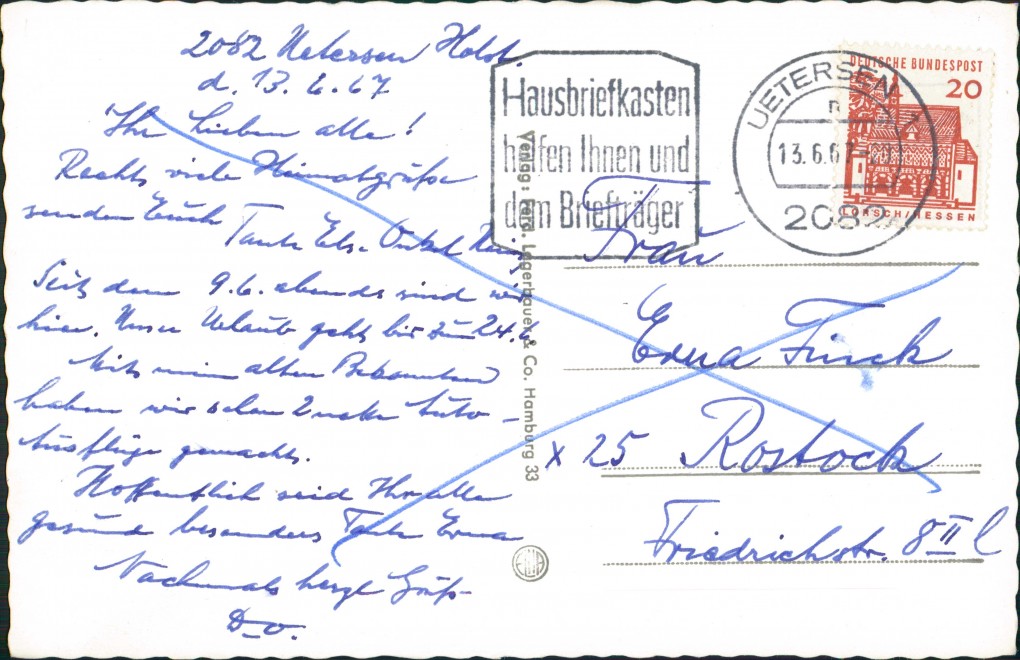 2082 Uetersen Holst.
d. 13.6.67
Ihr lieben alle!
Rechts viele Heimatgrüße
senden Euch
Tante Else Onkel Heinz
Seit dem 9.6. abends sind wir
hier. Unser Urlaub geht bis zum 24.6.
Mits alten Bekannten
haben wir schon 2 nette Auto-
Ausflüge gemacht.
Hoffentlich seid Ihr alle
gesund besonders Tante Erna
Nochmals herzl Grüße
D.O.
Verlag: Ferd. Lagerbauer & Co. Hamburg 33
Hausbriefkasten
helfen Ihnen und
dem Briefträger
UETERSEN
13.6.67
2082
DEUTSCHE BUNDESPOST
20
LORSCH/HESSEN
Frau
Erna Finck
x 25 Rostock
Friedrichstr. 8 II l